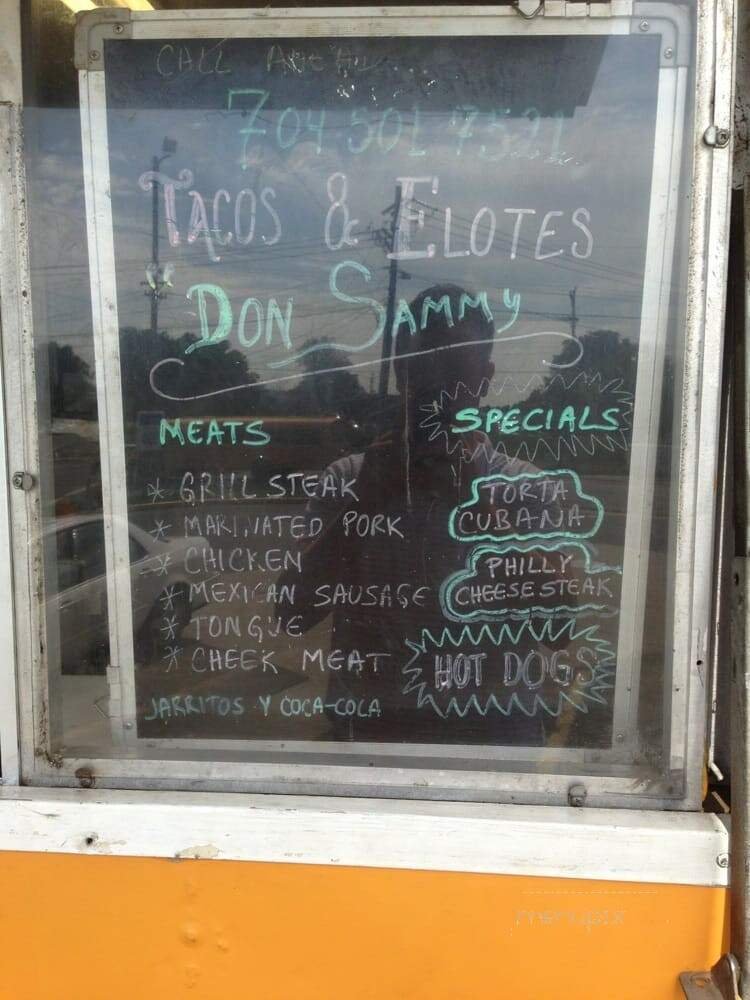 CALL AHEAD
704 501 7521
TACOS & ELOTES
DON SAMMY
MEATS
* GRILL STEAK
* MARINATED PORK
* CHICKEN
* MEXICAN SAUSAGE
* TONGUE
* CHEEK MEAT
JARRITOS Y COCA-COLA
SPECIALS
TORTA
CUBANA
PHILLY
CHEESE STEAK
HOT DOGS
menupix